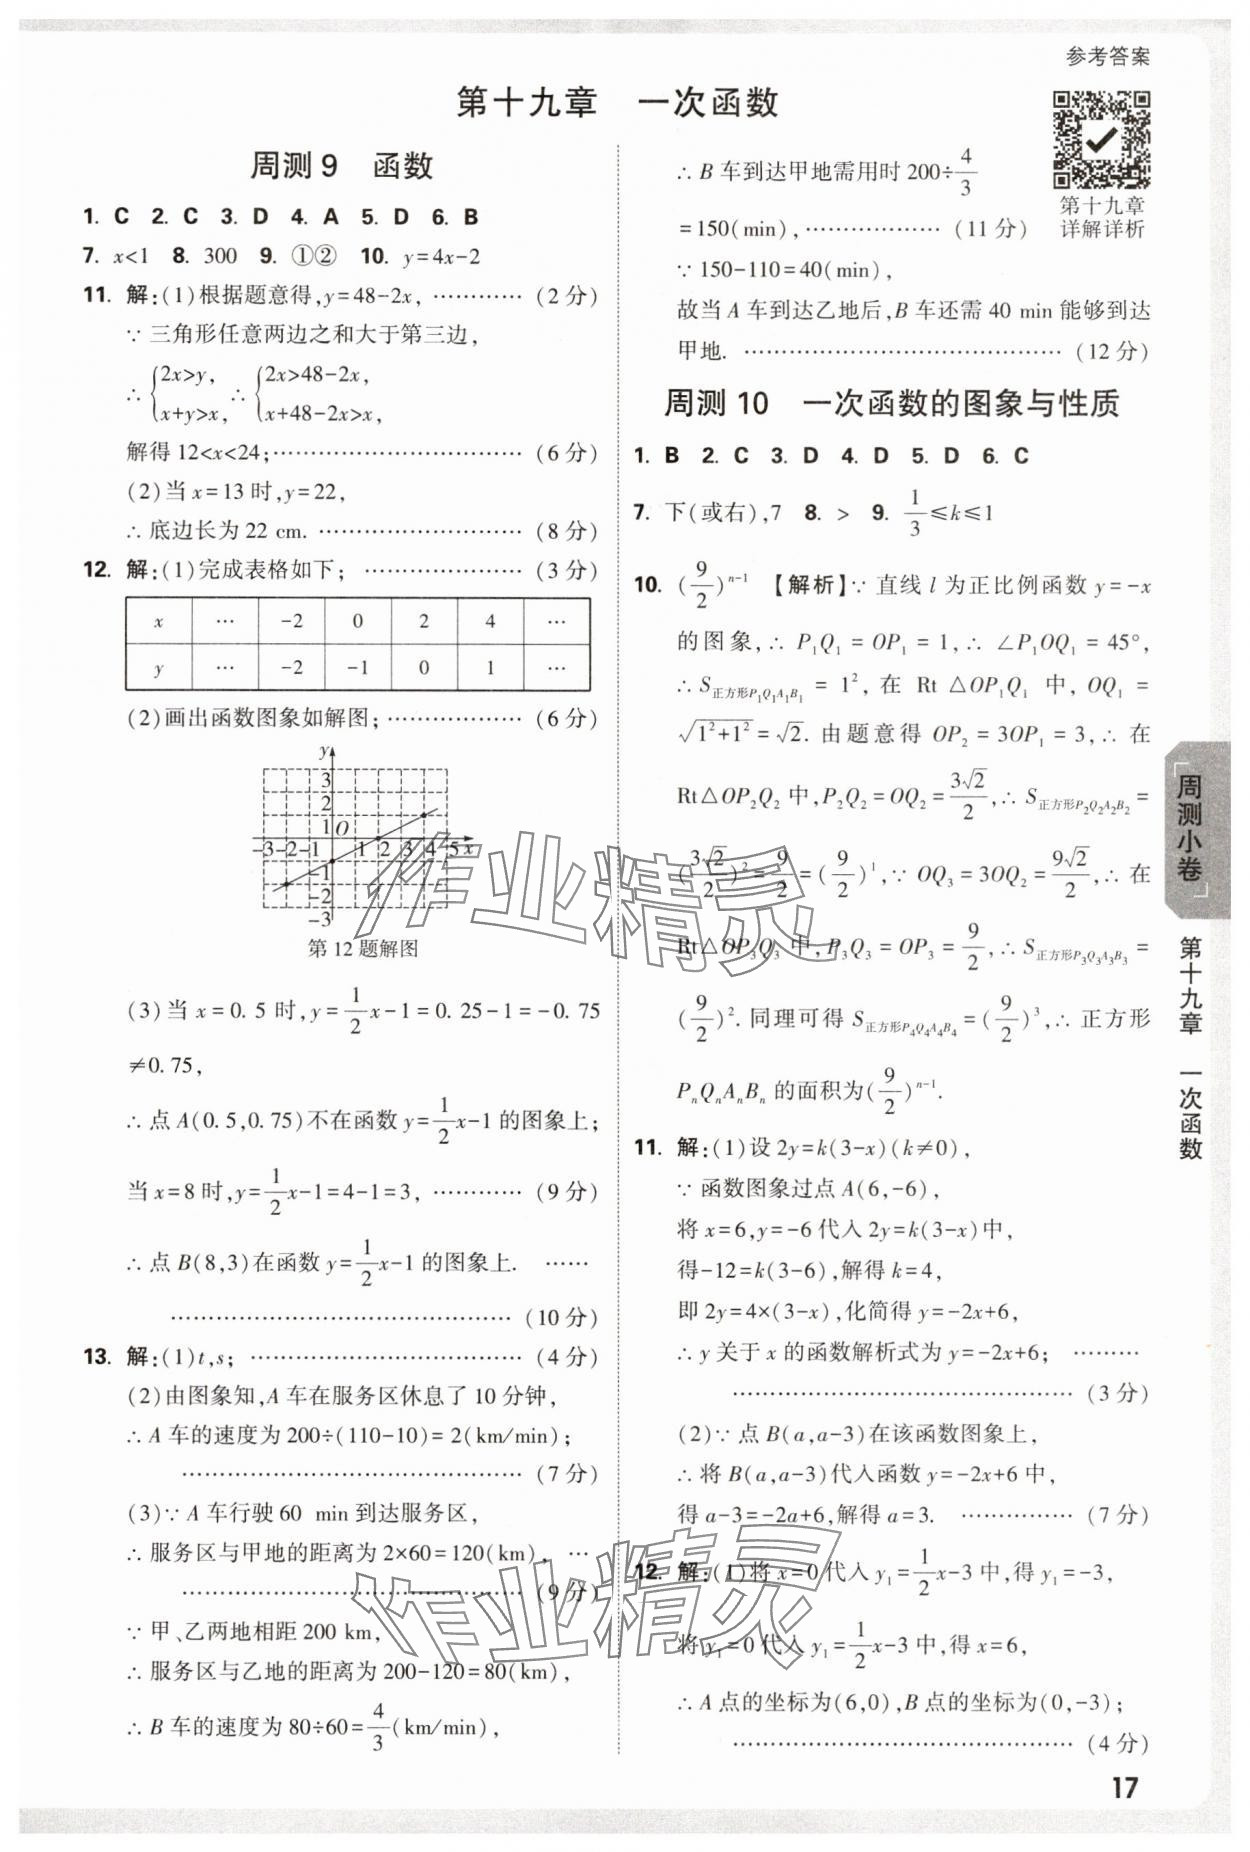 参考答案
第十九章 一次函数
周测 9 函数
1. C 2. C 3. D 4. A 5. D 6. B
7. x<1 8. 300 9. ①② 10. y=4x-2
11. 解:(1)根据题意得,y=48-2x, ………… (2 分)
∵ 三角形任意两边之和大于第三边,
∴ {2x>y, x+y>x, ∴ {2x>48-2x, x+48-2x>x,
解得 12<x<24;………………………… (6 分)
(2)当 x=13 时,y=22,
∴ 底边长为 22 cm. ………………… (8 分)
12. 解:(1)完成表格如下; ……………… (3 分)
x … -2 0 2 4 …
y … -2 -1 0 1 …
(2)画出函数图象如解图;……………… (6 分)
y
3
2
1
O
-3 -2 -1 1 2 3 4 5 x
-1
-2
-3
第 12 题解图
(3)当 x=0.5 时,y=1/2x-1=0.25-1=-0.75
≠0.75,
∴ 点 A(0.5,0.75)不在函数 y=1/2x-1 的图象上;
当 x=8 时,y=1/2x-1=4-1=3, ………… (9 分)
∴ 点 B(8,3)在函数 y=1/2x-1 的图象上. ……
…………………………………… (10 分)
13. 解:(1)t,s; …………………………… (4 分)
(2)由图象知,A 车在服务区休息了 10 分钟,
∴ A 车的速度为 200÷(110-10)=2(km/min);
…………………………………… (7 分)
(3)∵ A 车行驶 60 min 到达服务区,
∴ 服务区与甲地的距离为 2×60=120(km), …
…………………………………… (9 分)
∵ 甲、乙两地相距 200 km,
∴ 服务区与乙地的距离为 200-120=80(km),
∴ B 车的速度为 80÷60=4/3(km/min),
∴ B 车到达甲地需用时 200÷4/3
=150(min), ……………… (11 分)
∵ 150-110=40(min),
故当 A 车到达乙地后,B 车还需 40 min 能够到达
甲地. ………………………………… (12 分)
第十九章
详解详析
周测 10 一次函数的图象与性质
1. B 2. C 3. D 4. D 5. D 6. C
7. 下(或右),7 8. > 9. 1/3≤k≤1
10. (9/2)^(n-1) 【解析】∵ 直线 l 为正比例函数 y=-x
的图象,∴ P₁Q₁=OP₁=1,∴ ∠P₁OQ₁=45°,
∴ S正方形P₁Q₁A₁B₁=1²,在 Rt △OP₁Q₁ 中,OQ₁=
√(1²+1²)=√2. 由题意得 OP₂=3OP₁=3,∴ 在
Rt△OP₂Q₂ 中,P₂Q₂=OQ₂=3√2/2,∴ S正方形P₂Q₂A₂B₂=
(3√2/2)²=9/2=(9/2)¹,∵ OQ₃=3OQ₂=9√2/2,∴ 在
Rt△OP₃Q₃ 中,P₃Q₃=OP₃=9/2,∴ S正方形P₃Q₃A₃B₃=
(9/2)².同理可得 S正方形P₄Q₄A₄B₄=(9/2)³,∴ 正方形
PₙQₙAₙBₙ 的面积为(9/2)^(n-1).
11. 解:(1)设 2y=k(3-x)(k≠0),
∵ 函数图象过点 A(6,-6),
将 x=6,y=-6 代入 2y=k(3-x)中,
得-12=k(3-6),解得 k=4,
即 2y=4×(3-x),化简得 y=-2x+6,
∴ y 关于 x 的函数解析式为 y=-2x+6; ………
…………………………………… (3 分)
(2)∵ 点 B(a,a-3)在该函数图象上,
∴ 将 B(a,a-3)代入函数 y=-2x+6 中,
得 a-3=-2a+6,解得 a=3. …………… (7 分)
12. 解:(1)将 x=0 代入 y₁=1/2x-3 中,得 y₁=-3,
将 y₁=0 代入 y₁=1/2x-3 中,得 x=6,
∴ A 点的坐标为(6,0),B 点的坐标为(0,-3);
…………………………………… (4 分)
周测小卷
第十九章 一次函数
17
作业精灵
作业精灵